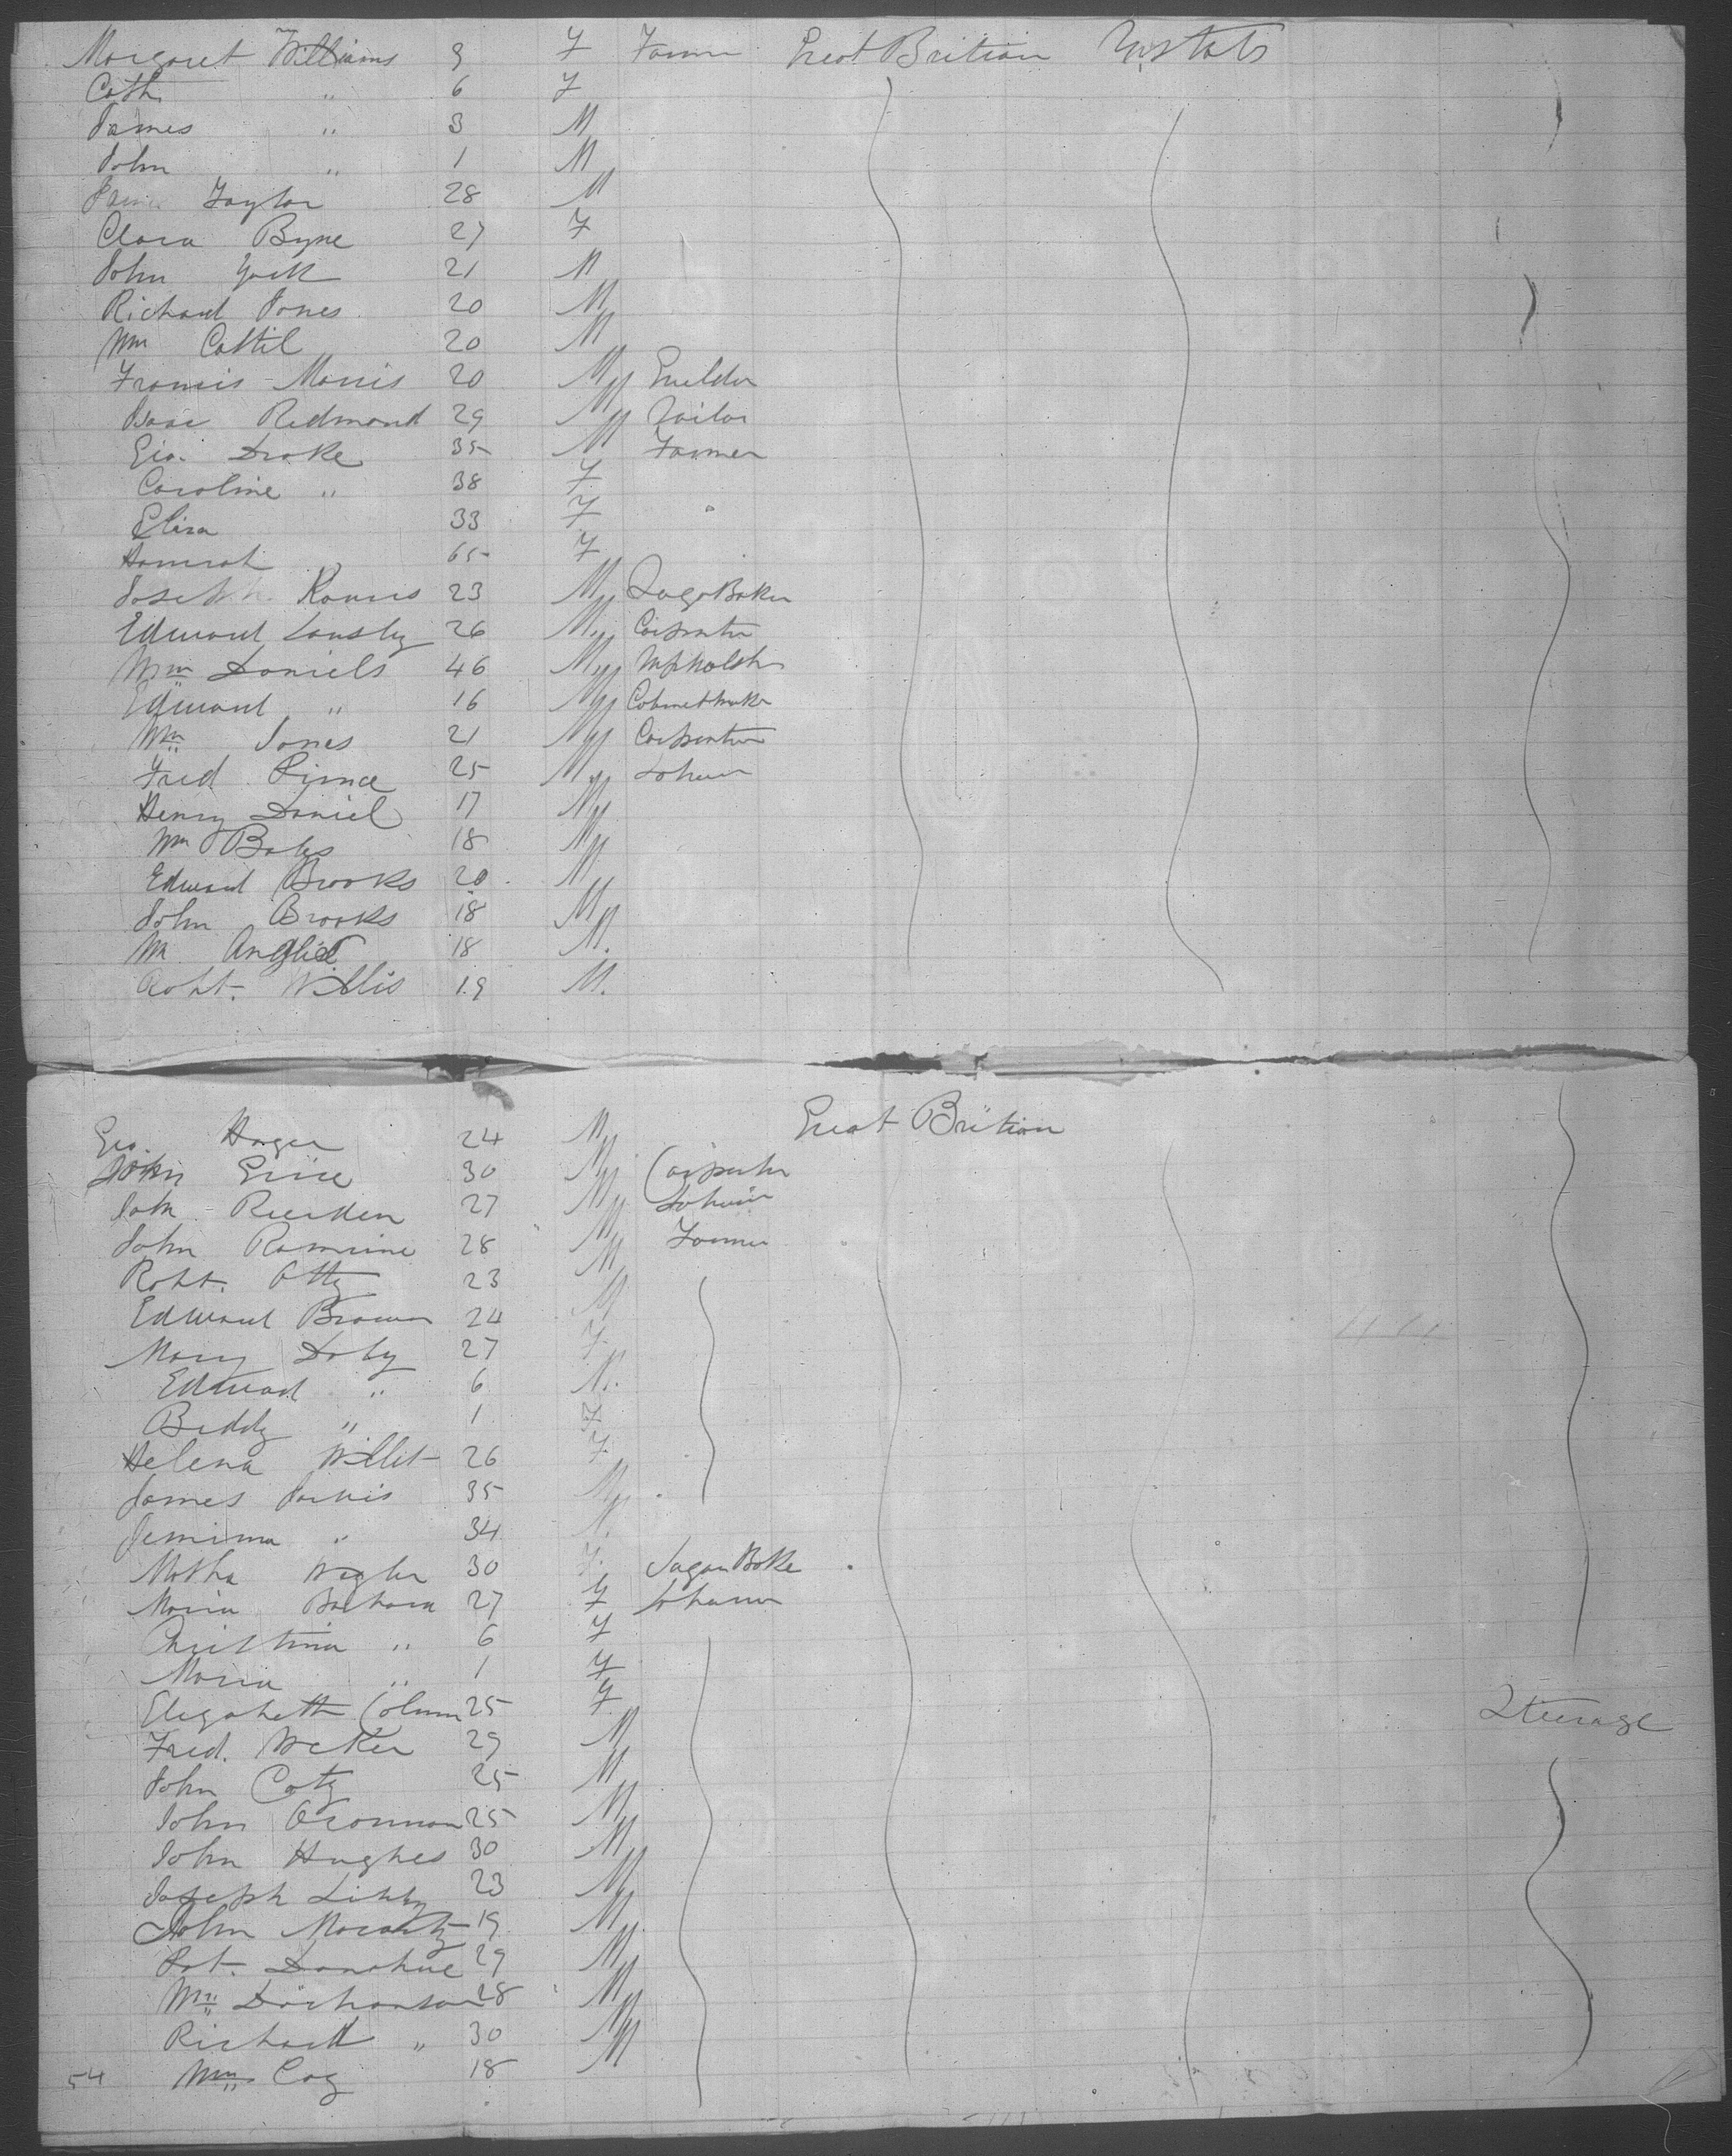 Margaret Williams 9 F Farmer Great Britian U. Stats
Cath. " 6 F
James " 3 M
John " 1 M
Taylor 28 M
Clara Byne 27 F
John York 21 M
Richard Jones 20 M
Wm Cottil 20 M
Francis Morris 20 M
Isaac Redmond 29 M Tailor
Geo. Drake 35 M Farmer
Caroline " 38 F
Eliza 33 F
Hannah " 65 F
Joseph 23 M Sugar Baker
Edward Lansby 26 M Carpenter
Wm Daniels 46 M Upholster
Edward " 16 M Cabinetmaker
Wm Jones 21 M Carpenter
Fred Prince 25 M Laborer
Henry Daniel 17 M
Wm Bates 18 M
Edward Brooks 20 M
John Brooks 18 M
18 M.
Robt. Willis 19 M.
Geo. Hager 24 M Great Britian
John 30 M Carpenter
27 M Laborer
John 28 M Farmer
Robt. Otty 23 M
Edward Brown 24 M
Mary Doly 27 F
Edward " 6 M.
Biddy " 1 F
Helena Willet 26 F
James Jarvis 35 M
Jemima " 34
30 F. Sugar Baker
Maria Barbara 27 F Laborer
Christina " 6 F
Maria " 1 F
Elizabeth 25 F Steerage
Fred. 29 M
John Coty 25 M
John 25 M
John Hughes 30 M
Joseph Libby 23 M
John Moriarty 19 M
Pat. Donohue 29 M
Wm 28 M
Richard " 30 M
54 Wm Coy 18 M